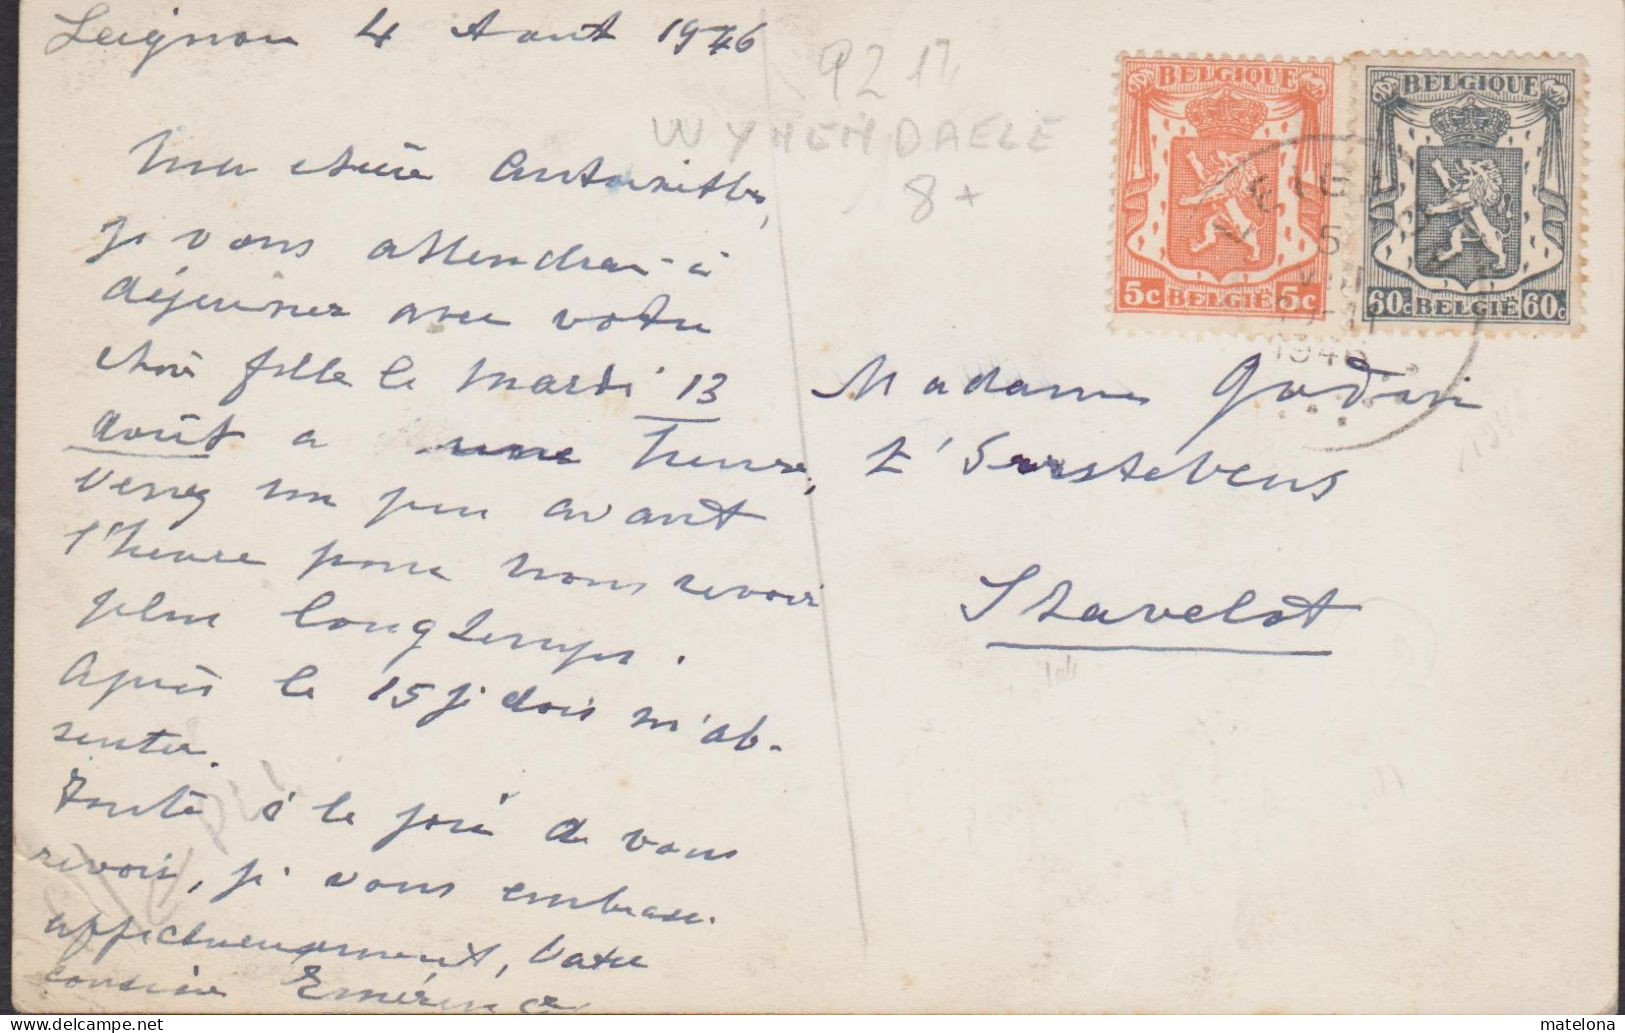 Leignon 4 Aout 1946
Ma chère Antoinette,
je vous attendrai à
déjeuner avec votre
chère fille le mardi 13
août a une heure,
Venez un peu avant
l'heure pour nous revoir
plus longtemps.
Après le 15 je dois m'ab-
senter.
Toute à la joie de vous
revoir, je vous embrasse
affectueusement, Votre
cousine Emérence
92 17
WYNENDAELE
8+
BELGIQUE
5c BELGIË 5c
BELGIQUE
60c BELGIË 60c
5
1946
Madame Godin
t'Serstevens
Stavelot
matelona